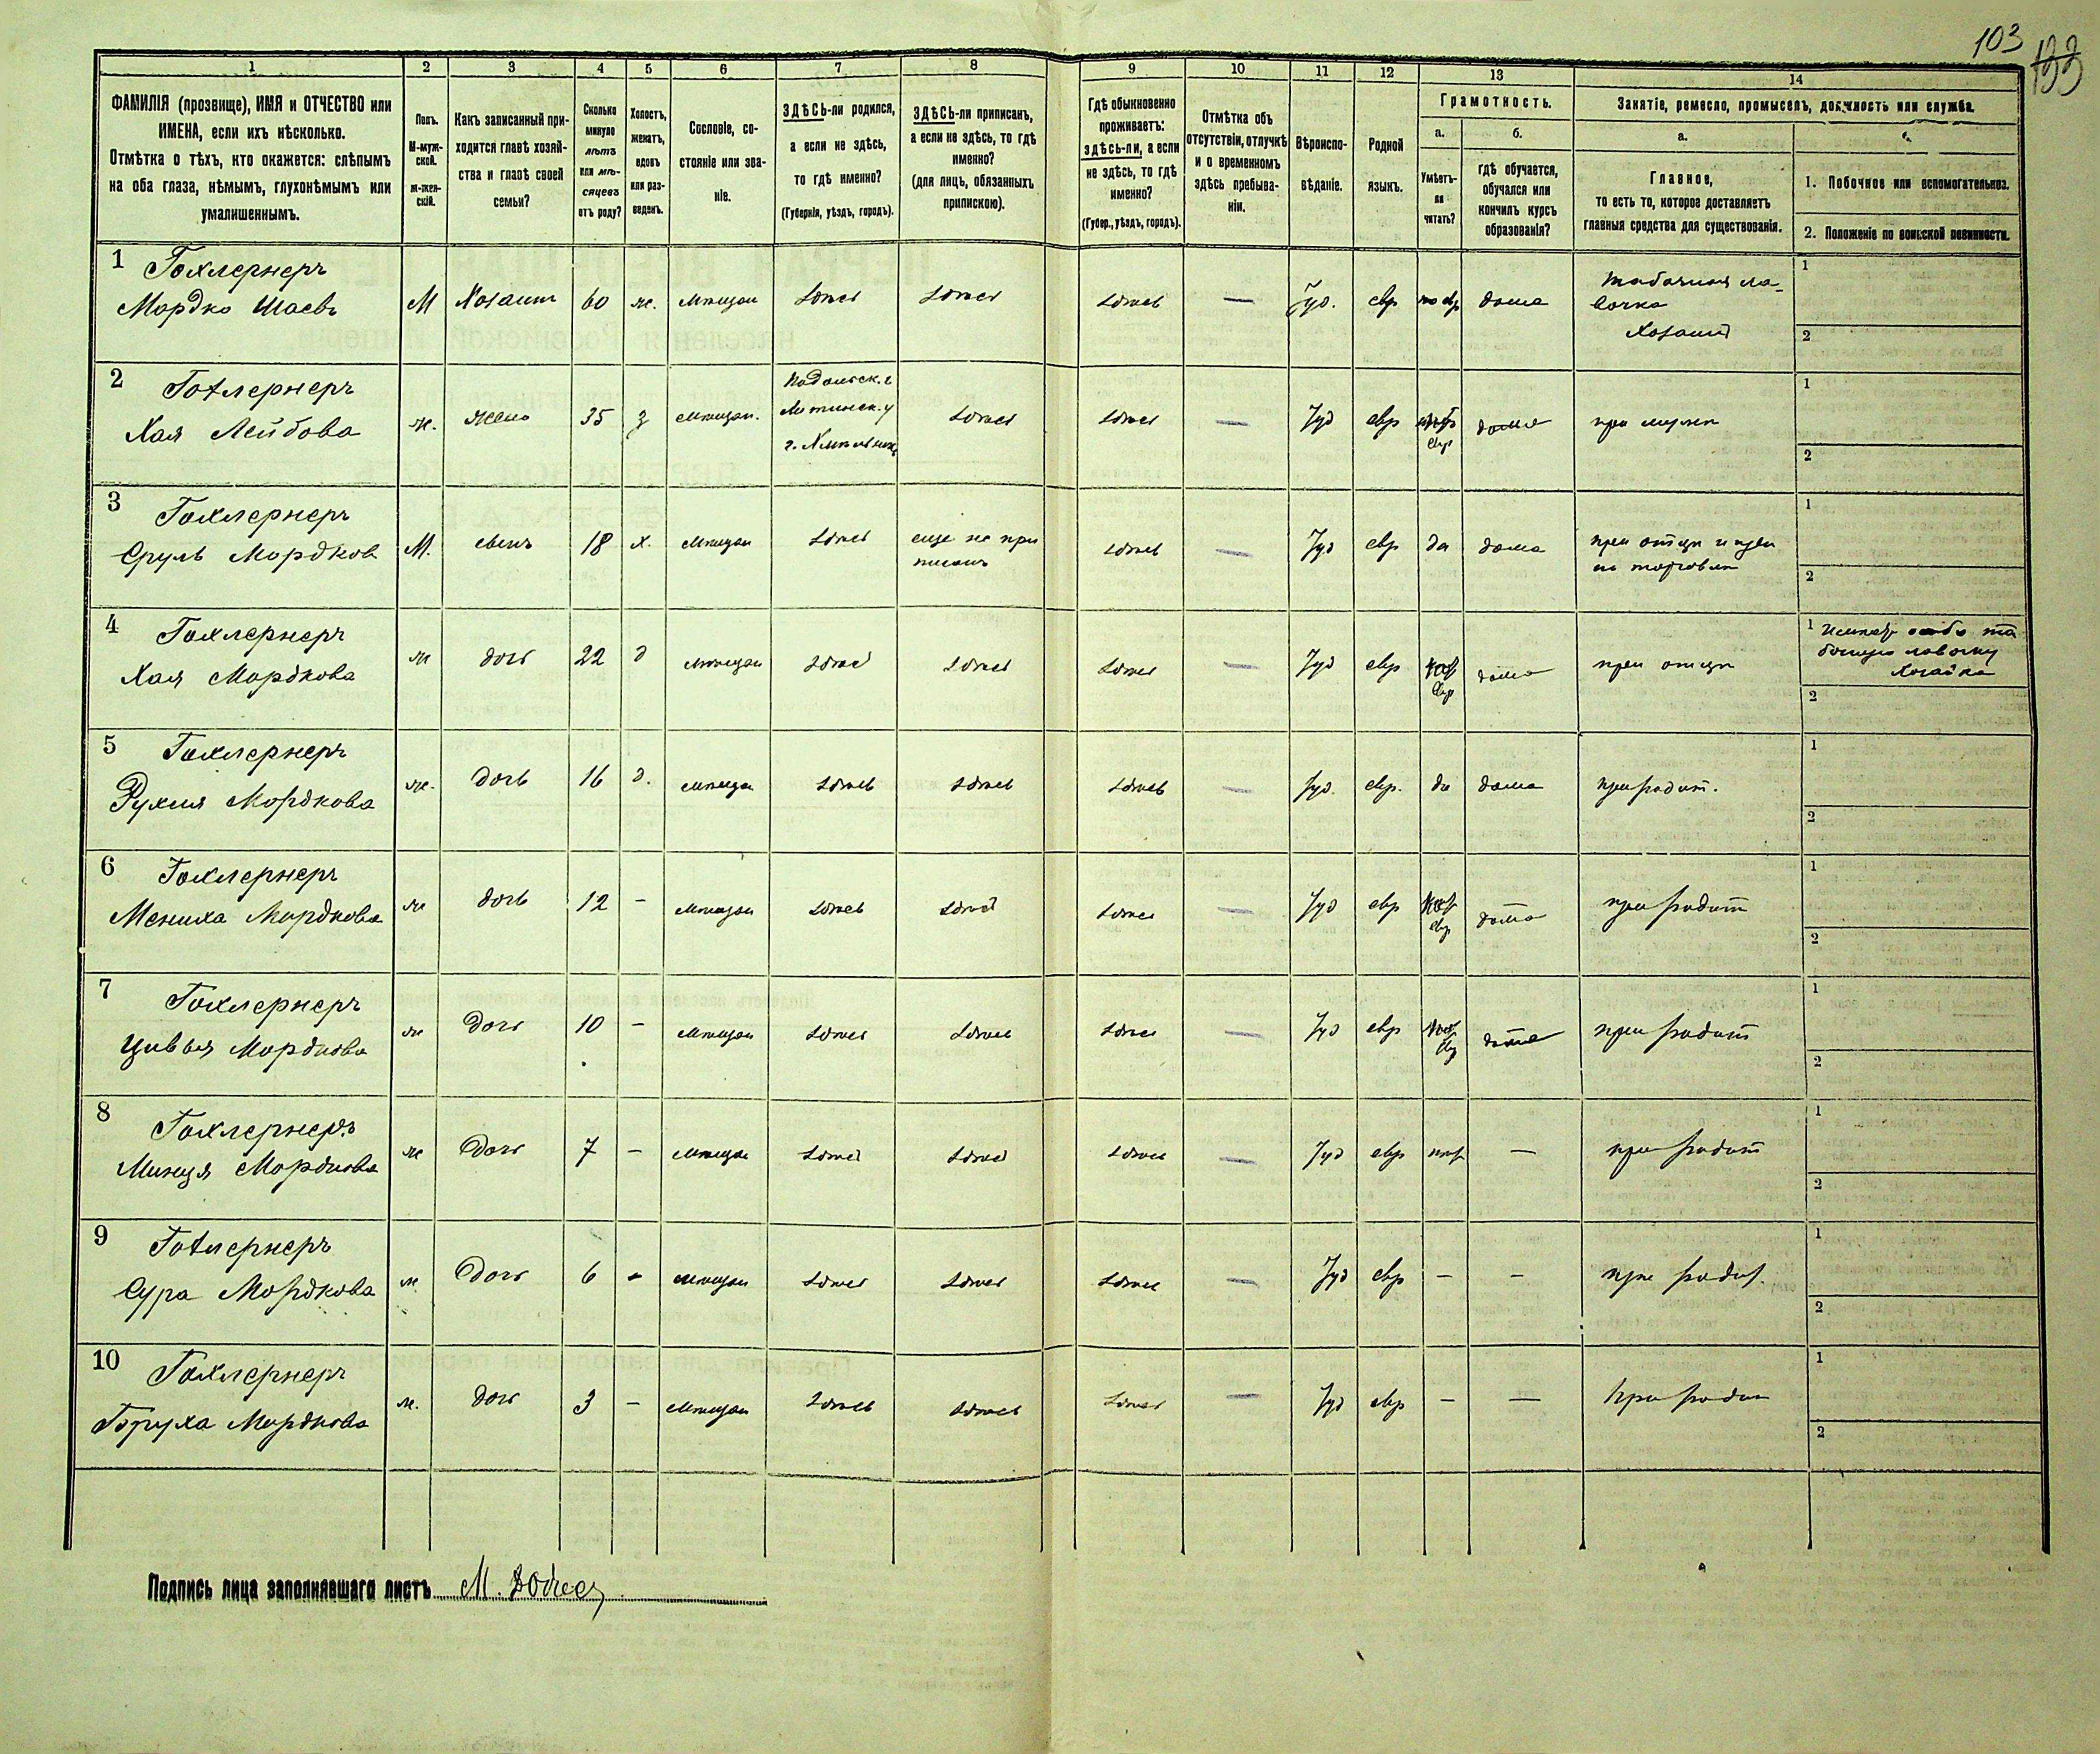 103
133
1 2 3 4 5 6 7 8 9 10 11 12 13 14
ФАМИЛІЯ (прозвище), ИМЯ и ОТЧЕСТВО или
ИМЕНА, если ихъ нѣсколько.
Отмѣтка о тѣхъ, кто окажется: слѣпымъ
на оба глаза, нѣмымъ, глухонѣмымъ или
умалишеннымъ.
Полъ.
М-муж-
ской.
Ж-жен-
скій.
Какъ записанный при-
ходится главѣ хозяй-
ства и главѣ своей
семьи?
Сколько
минуло
лѣтъ
или мѣ-
сяцевъ
отъ роду?
Холостъ,
женатъ,
вдовъ
или раз-
веденъ.
Сословіе, со-
стояніе или зва-
ніе.
ЗДѢСЬ-ли родился,
а если не здѣсь,
то гдѣ именно?
(Губернія, уѣздъ, городъ).
ЗДѢСЬ-ли приписанъ,
а если не здѣсь, то гдѣ
именно?
(для лицъ, обязанныхъ
припискою).
Гдѣ обыкновенно
проживаетъ:
здѣсь-ли, а если
не здѣсь, то гдѣ
именно?
(Губер., уѣздъ, городъ).
Отмѣтка объ
отсутствіи, отлучкѣ
и о временномъ
здѣсь пребыва-
ніи.
Вѣроиспо-
вѣданіе.
Родной
языкъ.
Грамотность.
а.
Умѣетъ-
ли
читать?
б.
гдѣ обучается,
обучался или
кончилъ курсъ
образованія?
Занятіе, ремесло, промыселъ, должность или служба.
а.
Главное,
то есть то, которое доставляетъ
главныя средства для существованія.
1. Побочное или вспомогательное.
2. Положеніе по воинской повинности.
1 Гохлернеръ
Мордко Шаевъ М Хозаинъ 60 ж. мѣщан здѣсь здѣсь здѣсь — Іуд. евр по евр дома Табачная ла-
вочка
Хозаинъ
1
2
2 Гохлернеръ
Хая Лейбова ж. жена 35 з мѣщан. Подольск. г
Литинск. у
г. Хмѣльник здѣсь здѣсь — Іуд евр евр дома при мужѣ
1
2
3 Гохлернеръ
Сруль Мордков М. сынъ 18 х. мѣщан здѣсь еще не при
писанъ здѣсь — Іуд евр да дома при отцѣ и при
его торговлѣ
1
2
4 Гохлернеръ
Хая Мордкова ж дочь 22 д мѣщан здѣсь здѣсь здѣсь — Іуд евр евр дома при отцѣ
1 лавочку
Хозайка
2
5 Гохлернеръ
Рухля Мордкова ж. дочь 16 д. мѣщан здѣсь здѣсь здѣсь — Іуд. евр. да дома при родит.
1
2
6 Гохлернеръ
Мениха Мордкова ж дочь 12 - мѣщан здѣсь здѣсь здѣсь — Іуд евр евр дома при родит
1
2
7 Гохлернеръ
Цивья Мордкова ж дочь 10 - мѣщан здѣсь здѣсь здѣсь — Іуд евр евр дома при родит
1
2
8 Гохлернеръ
Минця Мордкова ж дочь 7 - мѣщан здѣсь здѣсь здѣсь — Іуд евр — при родит
1
2
9 Гохлернеръ
Сура Мордкова ж дочь 6 - мѣщан здѣсь здѣсь здѣсь — Іуд евр — — при родит.
1
2
10 Гохлернеръ
Бруха Мордкова ж. дочь 3 - мѣщан здѣсь здѣсь здѣсь — Іуд евр — — при родит
1
2
Подпись лица заполнявшаго листъ М.